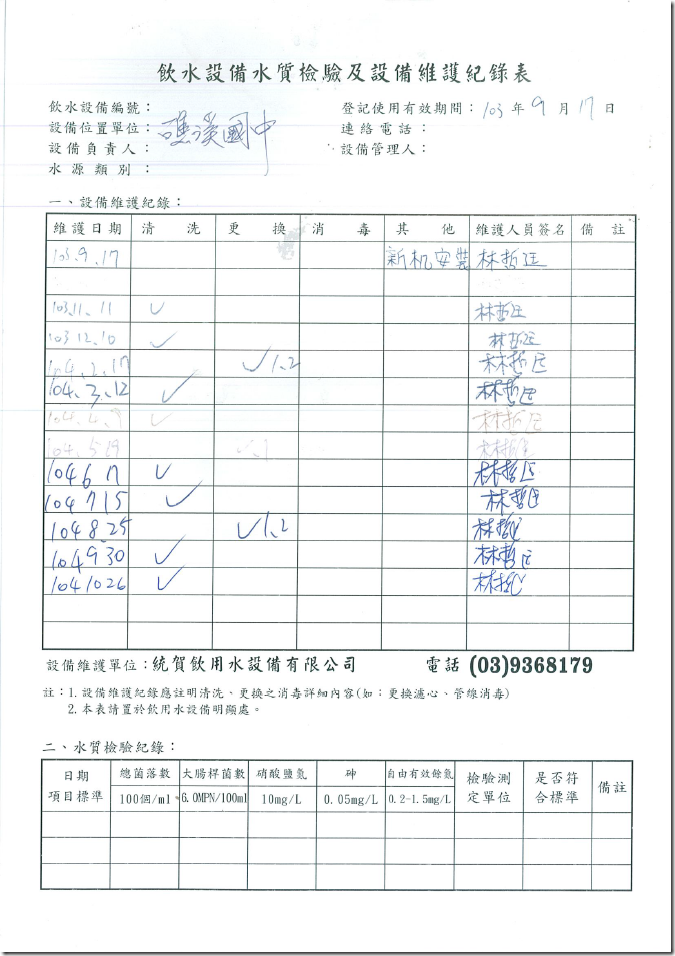 飲水設備水質檢驗及設備維護紀錄表
飲水設備編號： 登記使用有效期間：103 年 9 月 17 日
設備位置單位：礁溪國中 連絡電話：
設備負責人： 設備管理人：
水源類別：
一、設備維護紀錄：
維護日期 清洗 更換 消毒 其他 維護人員簽名 備註
103.9.17 新机安裝 林哲廷
103.11.11 ✓ 林哲廷
103 12.10 ✓ 林哲廷
104.2.17 ✓1.2 林哲廷
104.3.12 ✓ 林哲廷
104.4.9 ✓ 林哲廷
104.5 19 ✓.1 林哲廷
104 6 17 ✓ 林哲廷
104 7 15 ✓ 林哲廷
104 8.25 ✓1.2 林哲廷
104 9 30 ✓ 林哲廷
104 10 26 ✓ 林哲廷
設備維護單位：統賀飲用水設備有限公司 電話 (03)9368179
註：1.設備維護紀錄應註明清洗、更換之消毒詳細內容(如：更換濾心、管線消毒)
2.本表請置於飲用水設備明顯處。
二、水質檢驗紀錄：
日期 總菌落數 大腸桿菌數 硝酸鹽氮 砷 自由有效餘氯 檢驗測定單位 是否符合標準 備註
項目標準 100個/ml 6.0MPN/100ml 10mg/L 0.05mg/L 0.2-1.5mg/L